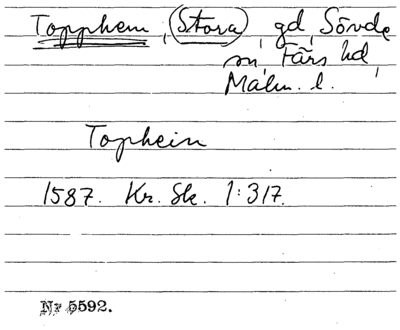 Topphem, (Stora), gd, Sövde
sn, Färs hd,
Malm. l.
Tophein
1587. Kr. Sk. 1:317.
Nr 5592.